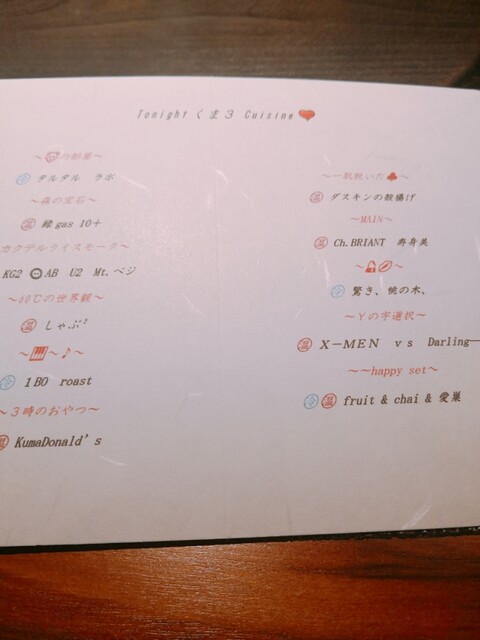 Tonight くま3 Cuisine
の部屋〜
冷 タルタル ラボ
〜森の宝石〜
温 縁gas 10+
カクテルライスモーク〜
KG2 AB U2 Mt.ベジ
〜40℃の世界観〜
温 しゃぶ²
〜♪〜
冷 1BO roast
〜3時のおやつ〜
温 KumaDonald's
〜一肌脱いだ♣〜
温 ダスキンの殻揚げ
〜MAIN〜
温 Ch.BRIANT 寿身美
冷 驚き、桃の木、
〜Yの字選択〜
温 X－MEN vs Darling―
〜〜happy set〜
冷 温 fruit & chai & 愛巣